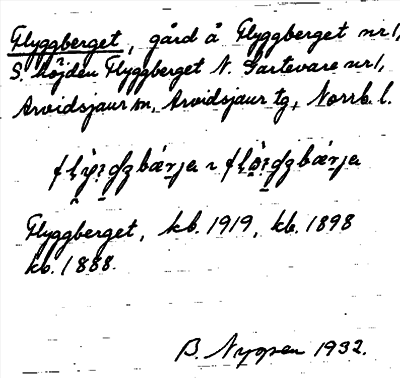 Flyggberget, gård å Flyggberget nr 1,
S. Höjden Flyggberget N. Gartevare nr 1,
Arvidsjaur sn, Arvidsjaur tg, Norrb. l.
Flyggberget, kb. 1919, kb. 1898
kb. 1888.
B. Nygren 1932.